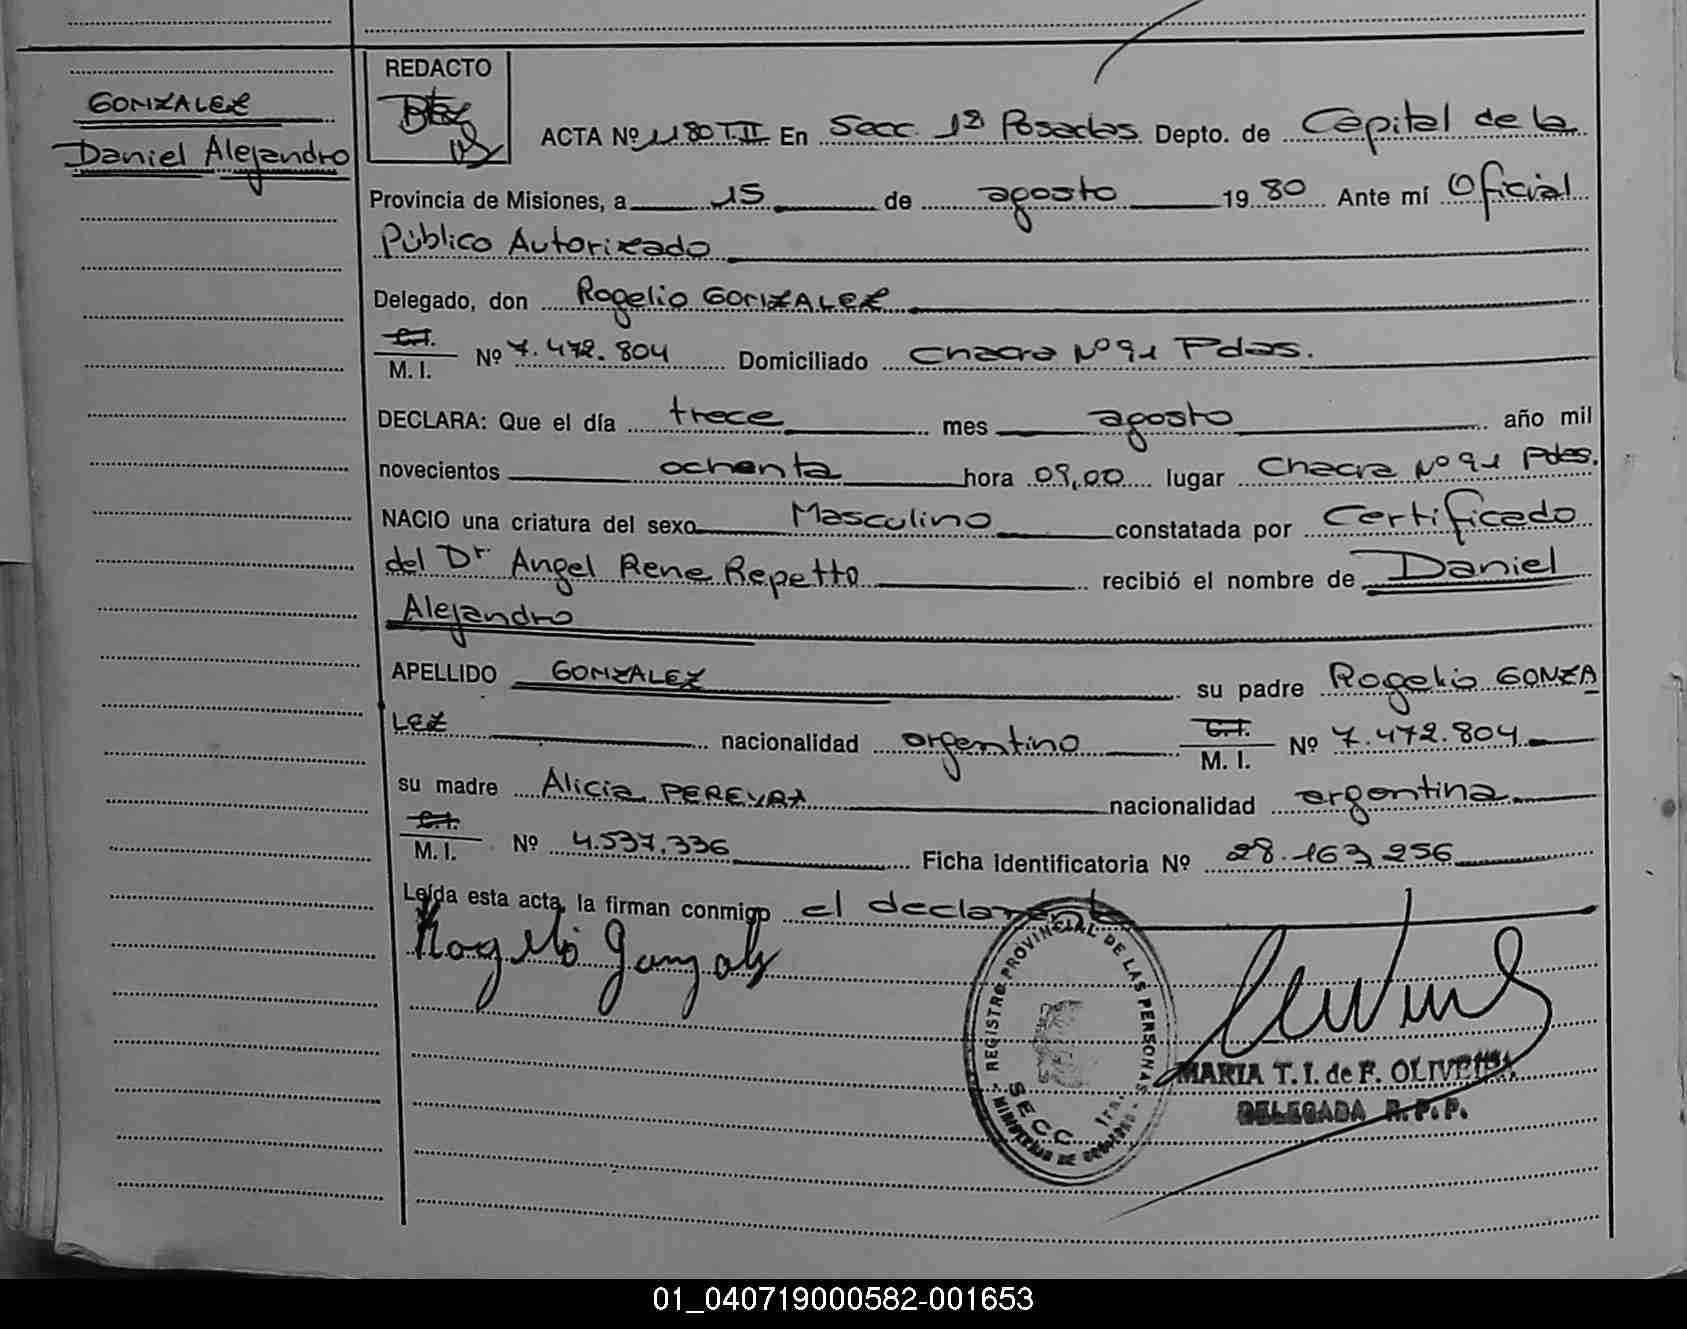 GONZALEZ
Daniel Alejandro
REDACTO
ACTA Nº 1180 T.II En Secc. 1ª Posadas Depto. de Capital de la
Provincia de Misiones, a 15 de agosto 1980 Ante mí Oficial
Público Autorizado
Delegado, don Rogelio GONZALEZ
C.I.
M. I. Nº 7.472.804 Domiciliado Chacra Nº 91 Pdas.
DECLARA: Que el día trece mes agosto año mil
novecientos ochenta hora 09,00 lugar Chacra Nº 91 Pdas.
NACIO una criatura del sexo Masculino constatada por Certificado
del Dr Angel Rene Repetto recibió el nombre de Daniel
Alejandro
APELLIDO GONZALEZ su padre Rogelio GONZA
LEZ nacionalidad argentino C.I. M. I. Nº 7.472.804
su madre Alicia PEREYRA nacionalidad argentina
C.I.
M. I. Nº 4.537.336 Ficha identificatoria Nº 28.163.256
Leída esta acta, la firman conmigo el declarante
Rogelio Gonzalez
REGISTRO PROVINCIAL DE LAS PERSONAS
SECC. 1ra.
MINISTERIO DE GOBIERNO
MARIA T. I. de F. OLIVEIRA
DELEGADA R. P. P.
01_040719000582-001653